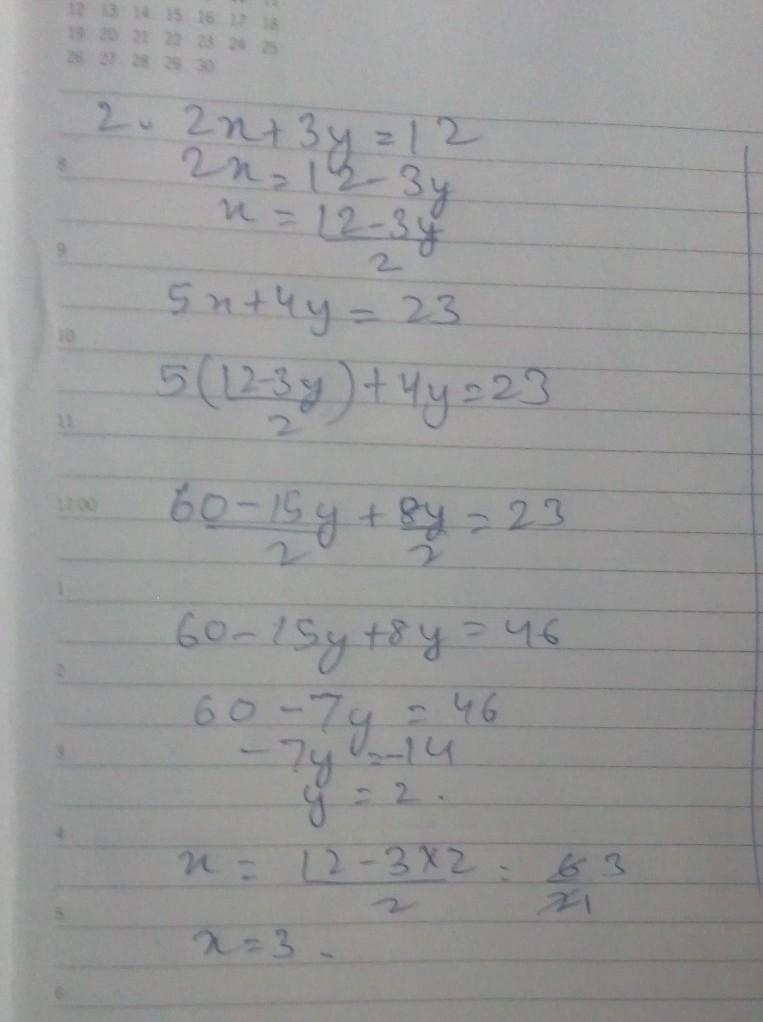 12 13 14 15 16 17 18
19 20 21 22 23 24 25
26 27 28 29 30
2. 2x+3y=12
8
2x=12-3y
x = 12-3y
9
2
5x+4y = 23
10
5(12-3y)+4y=23
11
2
12:00
60-15y + 8y = 23
2 2
1
60-15y+8y=46
2
60-7y = 46
3
-7y=-14
y = 2.
4
x = 12-3×2 = 6 3
2 21
5
x=3.
6